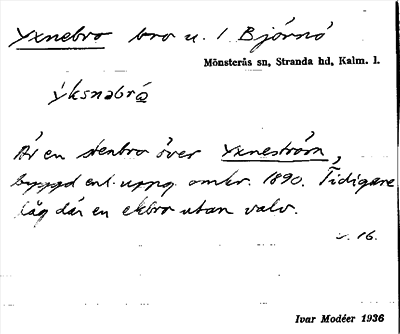 Yxnebro bro u. 1 Björnö
Mönsterås sn, Stranda hd, Kalm. l.
ýksnəbró̠
Är en stenbro över Yxneström,
byggd enl. uppg. omkr. 1890. Tidigare
låg där en ekbro utan valv.
s. 16.
Ivar Modéer 1936